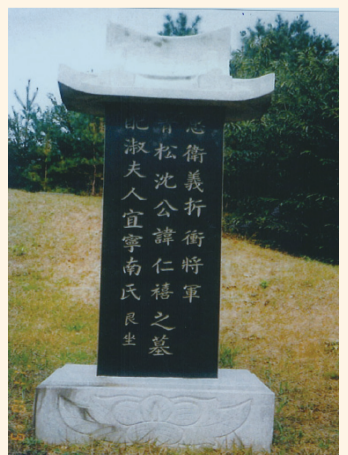 忠衛義折衝將軍
靑松沈公諱仁禧之墓
配淑夫人宜寧南氏 艮坐